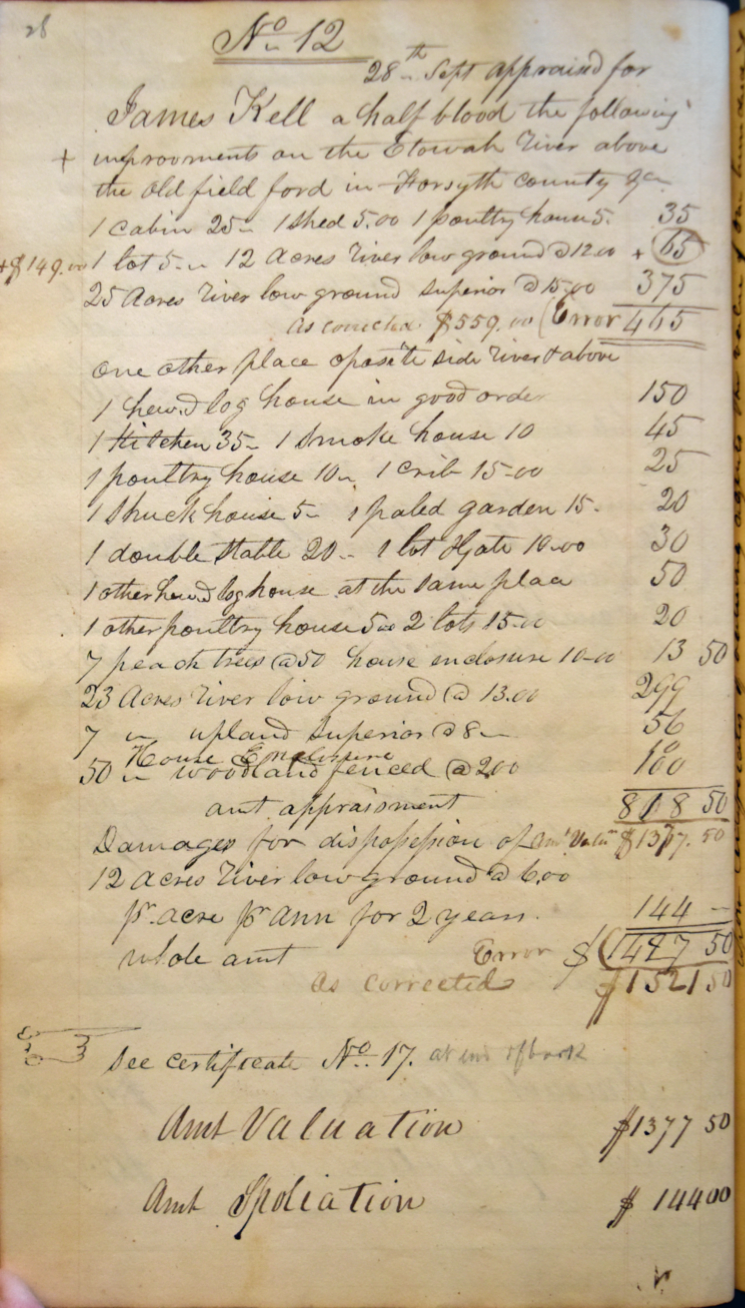 28
No. 12
28th Sept appraised for
James Kell a half blood the following
+ improovments on the Etowah River above
the old field ford in Forsyth county Ga
1 cabin 25 1 shed 5.00 1 poultry house 5. 35
+ $149.00 1 lot 5 12 Acres River low ground @ 12.00 + 65
25 Acres River low ground superior @ 15.00 375
as corrected $559.00 (Error 465
one other place oposite side River & above
1 hewd log house in good order 150
1 Kitchen 35 1 smoke house 10 45
1 poultry house 10 1 crib 15-00 25
1 shuck house 5 1 paled garden 15- 20
1 double stable 20 1 lot & gate 10-00 30
1 other hewd log house at the same place 50
1 other poultry house 5 2 lots 15-00 20
7 peach trees @ 50 house enclosure 10-00 13 50
23 Acres River low ground @ 13.00 299
7 " upland superior @ 8 56
House Enclosure 10
50 " woodland fenced @ 200 100
amt appraisment 818 50
Damages for dispossession of Amt Valu $1377.50
12 acres River low ground @ 6.00
pr. acre pr Ann for 2 years. 144 --
whole amt Error $ (1427 50
as corrected $1521 50
See certificate No. 17. at end of book
Amt Valuation $1377 50
Amt Spoliation $ 144 00